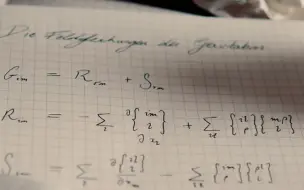 Die Feldgleichungen der Gravitation
G_im = R_im + S_im
R_im = - Σ_l ∂{im l}/∂x_l + Σ_lρ {il ρ}{mρ l}
S_im = Σ_l ∂{il l}/∂x_m - Σ_lρ {im ρ}{ρl l}